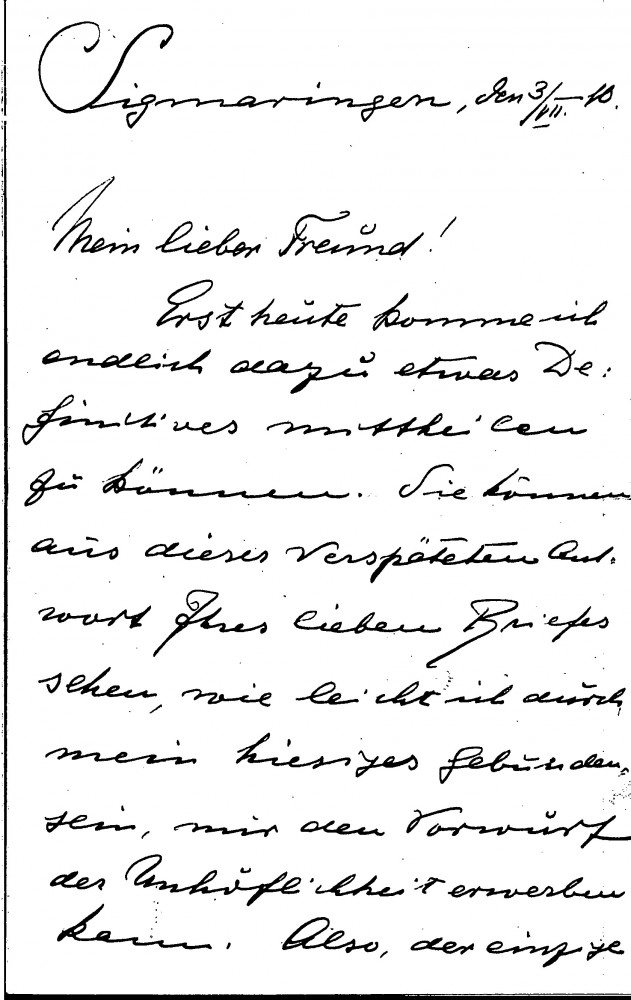 Sigmaringen, den 3/VII. 10.
Mein lieber Freund!
Erst heute komme ich
endlich dazu etwas De:
finitives mittheilen
zu können. Sie können
aus dieser verspäteten Ant-
wort Ihres lieben Briefes
sehen, wie leicht ich durch
mein hiesiges Gebunden-
sein, mir den Vorwurf
der Unhöflichkeit erwerben
kann. Also, der einzige